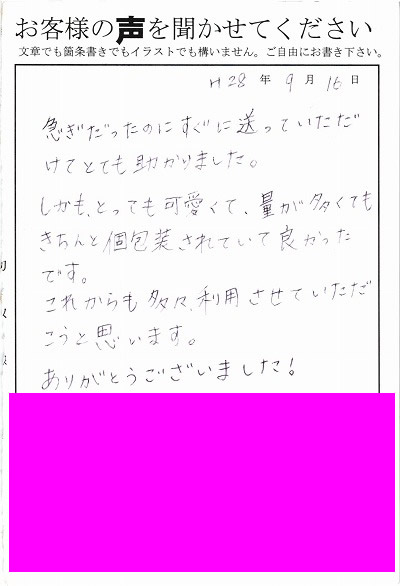 お客様の声を聞かせてください
文章でも箇条書きでもイラストでも構いません。ご自由にお書き下さい。
H28年9月16日
急ぎだったのにすぐに送っていただだ
けてとても助かりました。
しかも、とっても可愛くて、量が多くても
きちんと個包装されていて良かった
です。
これからも多々、利用させていただ
こうと思います。
ありがとうございました!